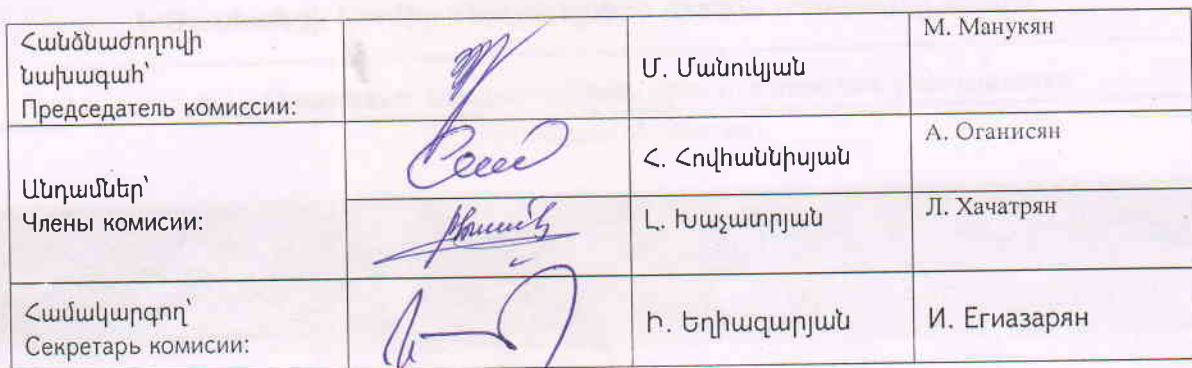 Հանձնաժողովի
նախագահ՝
Председатель комиссии:
Մ. Մանուկյան
М. Манукян
Անդամներ՝
Члены комисии:
Հ. Հովհաննիսյան
А. Оганисян
Լ. Խաչատրյան
Л. Хачатрян
Համակարգող՝
Секретарь комисии:
Ի. Եղիազարյան
И. Егиазарян